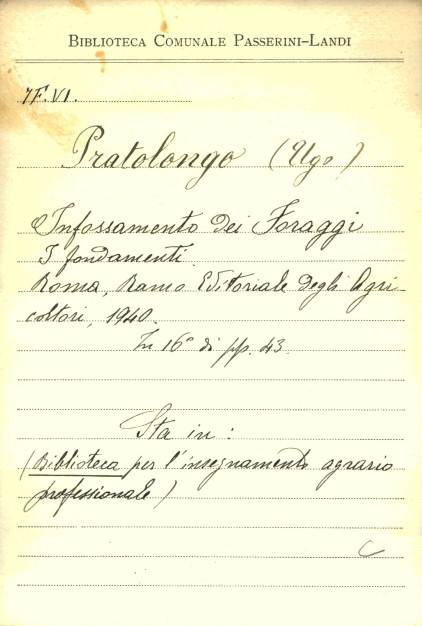 BIBLIOTECA COMUNALE PASSERINI-LANDI
7F.VI.
Pratolongo (Ugo)
Infossamento dei Foraggi
I fondamenti.
Roma, Ramo Editoriale degli Agri-
coltori, 1940.
In 16° di pp. 43.
Sta in:
(Biblioteca per l'insegnamento agrario
professionale)
C